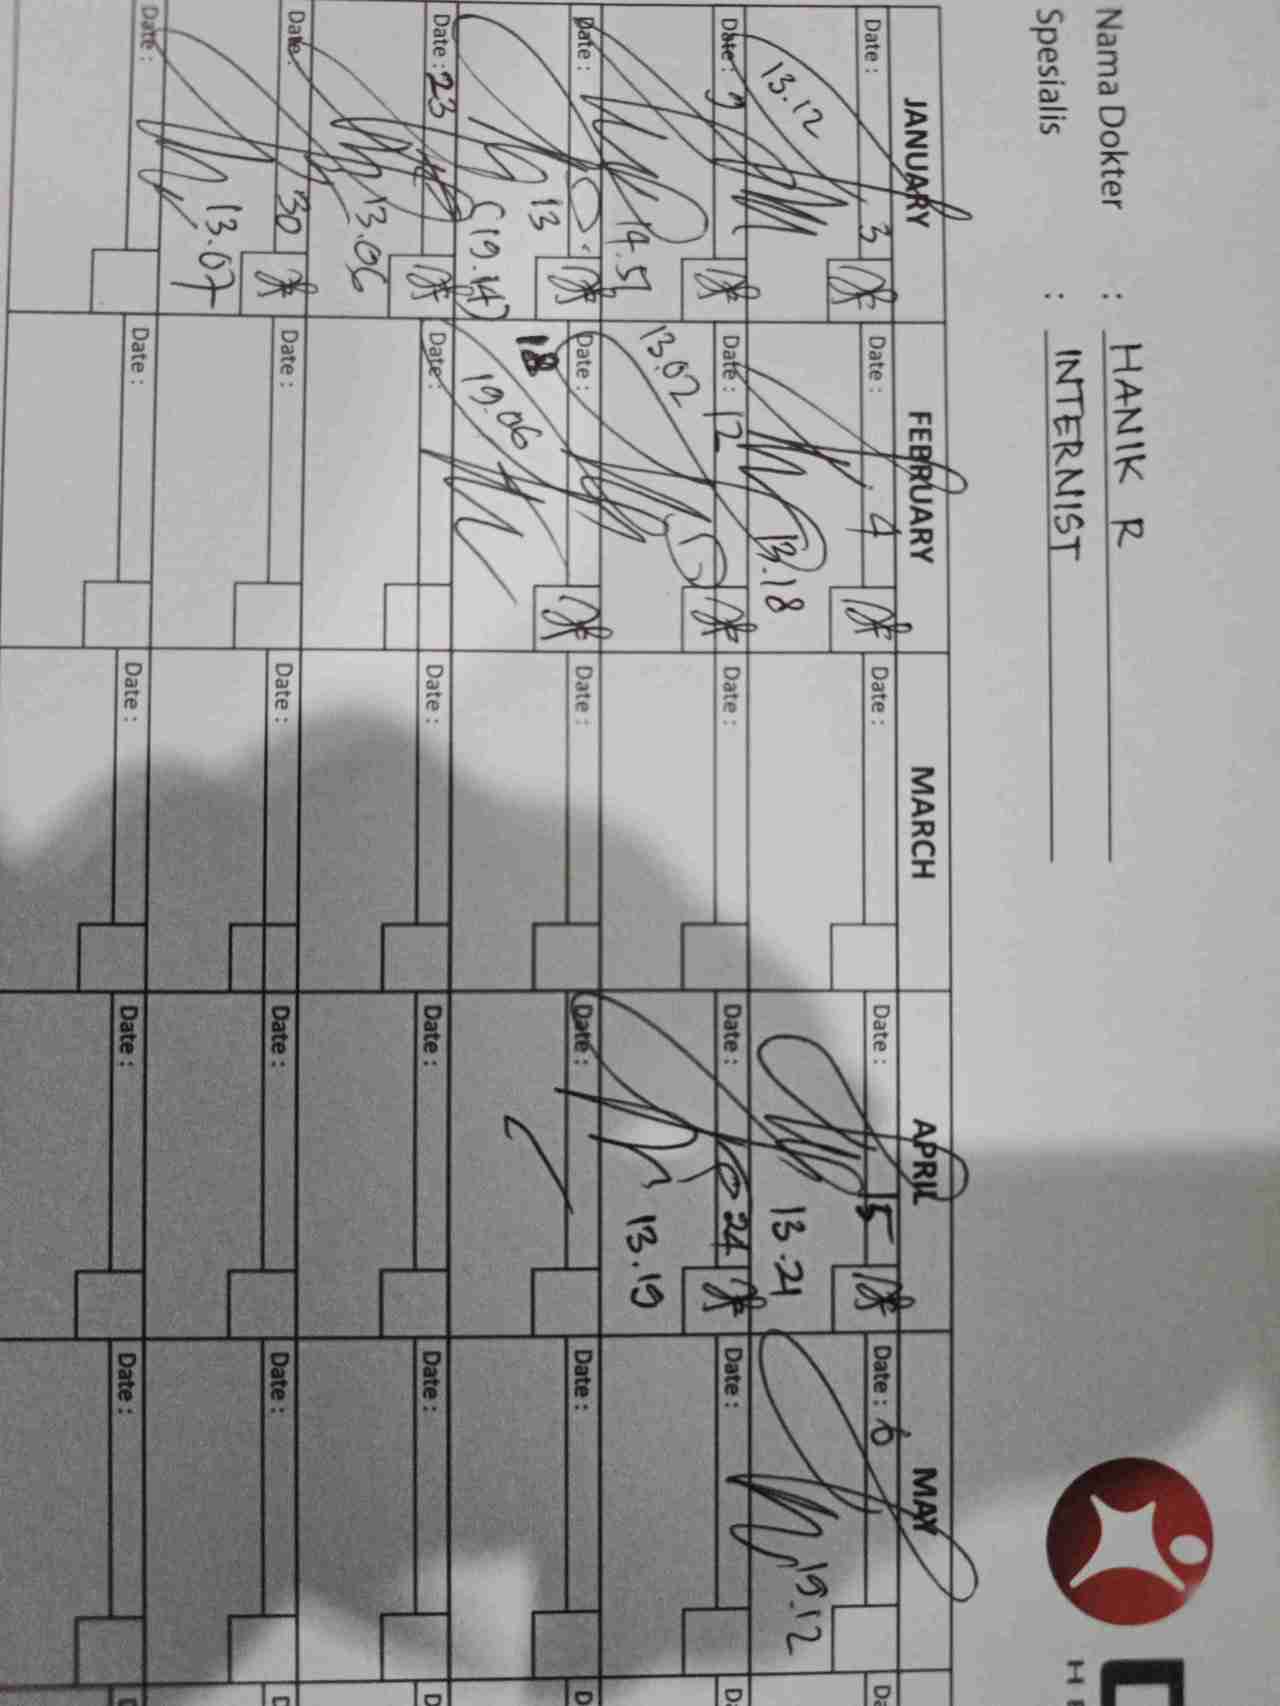 Nama Dokter : HANIK R
Spesialis : INTERNIST
JANUARY FEBRUARY MARCH APRIL MAY
Date : 3 Date : 4 Date : Date : 15 Date : 6
13.12 13.18 13.21 19.12
Date : 9 Date : 12 Date : Date : 24 Date :
14.51 13.02 13.19
Date : Date : 18 Date : Date : Date :
13 (19.14) 19.06
Date : 23 Date : Date : Date : Date :
13.06
Date : 30 Date : Date : Date : Date :
13.07
Date : Date : Date : Date : Date :